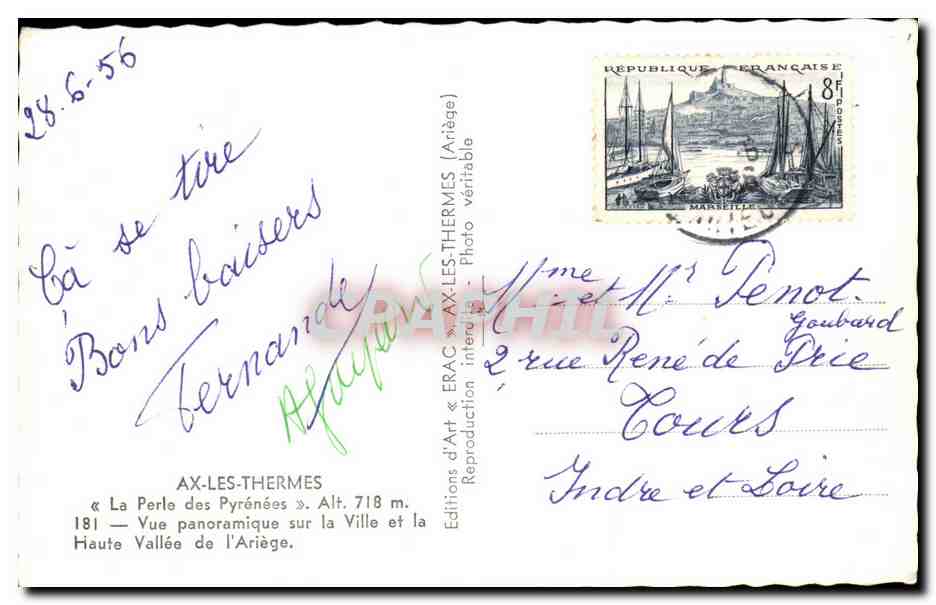 28.6-56
Çà se tire
Bons baisers
Fernande
AX-LES-THERMES
« La Perle des Pyrénées ». Alt. 718 m.
181 — Vue panoramique sur la Ville et la
Haute Vallée de l'Ariège.
Editions d'Art « ERAC », AX-LES-THERMES (Ariège)
Reproduction interdite - Photo véritable
CPAPHIL
RÉPUBLIQUE FRANÇAISE
8F
POSTES
MARSEILLE
Mme et Mr Penot.
Goubard
2 rue René de Prie
Tours
Indre et Loire